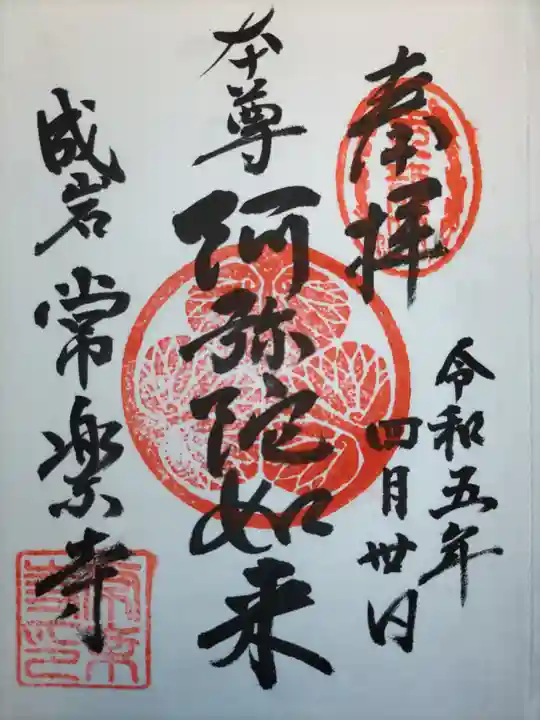 奉拝
令和五年
四月丗日
本尊
阿弥陀如来
成岩 常楽寺